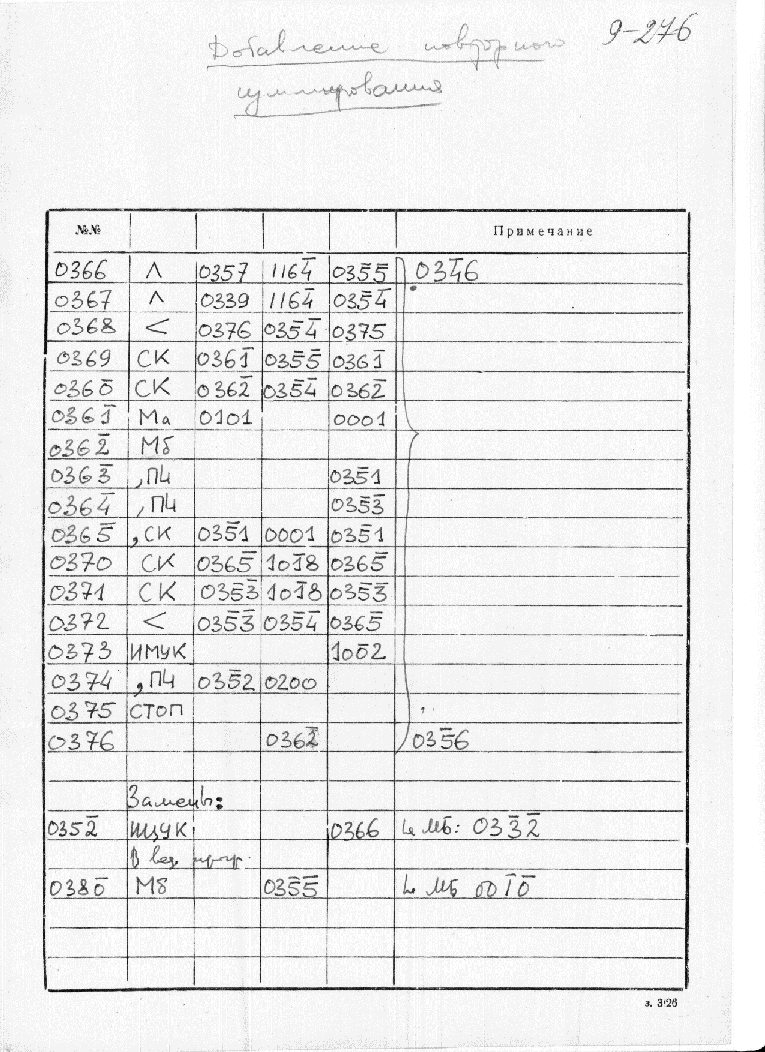 9-276
Добавление повторного
суммирования
№№ Примечание
0366 Λ 0357 1164̅ 035̅5̅ 034̅6
0367 Λ 0339 1164̅ 035̅4̅
0368 < 0376 035̅4̅ 0375
0369 СК 0361̅ 035̅5̅ 0361̅
0360̅ СК 0362̅ 035̅4̅ 0362̅
0361̅ Ма 0101 0001
0362̅ Мб
0363̅ ,ПЧ 035̅1
0364̅ ,ПЧ 035̅3̅
0365̅ ,СК 035̅1 0001 035̅1
0370 СК 0365̅ 101̅8 0365̅
0371 СК 035̅3̅ 101̅8 035̅3̅
0372 < 035̅3̅ 035̅4̅ 0365̅
0373 ИМУК 100̅2
0374 ,ПЧ 035̅2 0200
0375 СТОП
0376 0362̅ 035̅6
Замены:
0352̅ ИЦУК 0366 МБ: 033̅2̅
В
0380̅ Мб 035̅5̅ МБ 001̅0̅
з. 3126